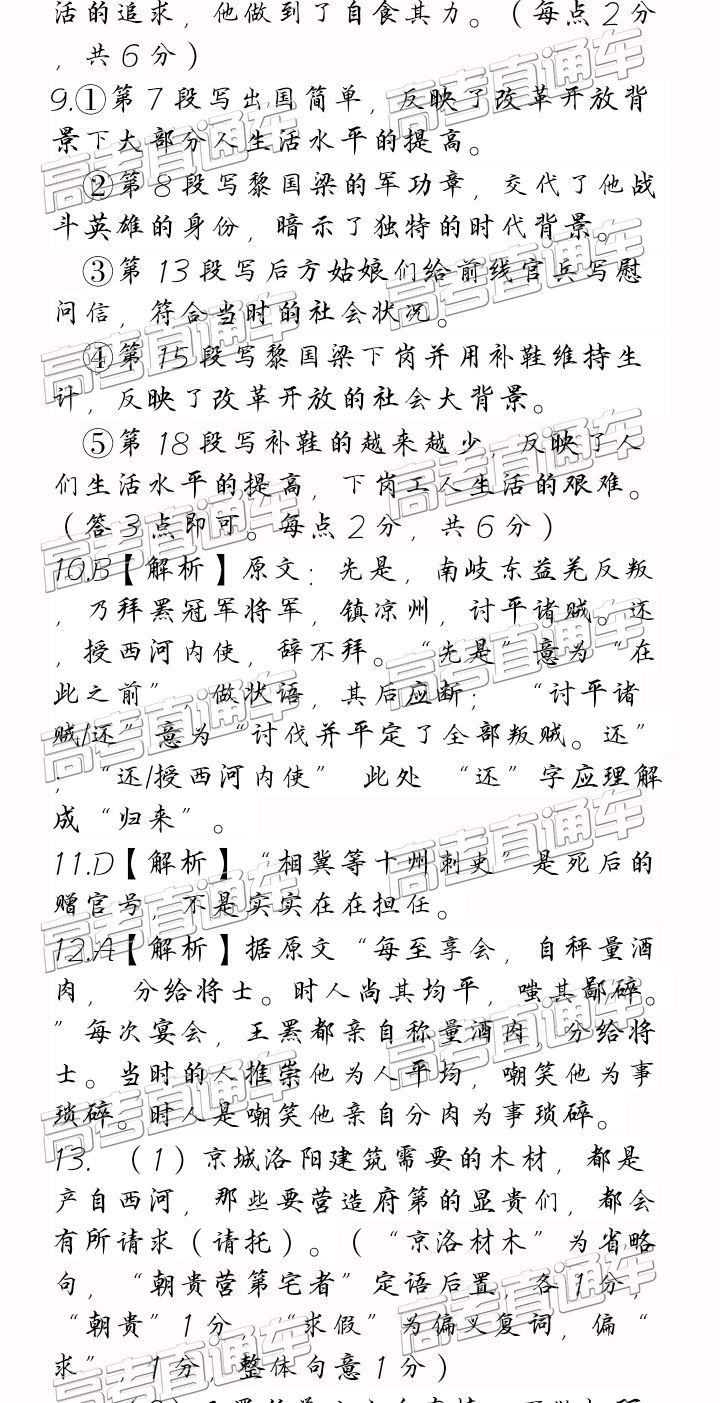 活的追求，他做到了自食其力。（每点2分
，共6分）
9.①第7段写出国简单，反映了改革开放背
景下大部分人生活水平的提高。
②第8段写黎国梁的军功章，交代了他战
斗英雄的身份，暗示了独特的时代背景。
③第13段写后方姑娘们给前线官兵写慰
问信，符合当时的社会状况。
④第15段写黎国梁下岗并用补鞋维持生
计，反映了改革开放的社会大背景。
⑤第18段写补鞋的越来越少，反映了人
们生活水平的提高，下岗工人生活的艰难。
（答3点即可。每点2分，共6分）
10.B【解析】原文：先是，南岐东益羌反叛
，乃拜罴冠军将军，镇凉州，讨平诸贼。还
，授西河内使，辞不拜。“先是”意为“在
此之前”，做状语，其后应断；“讨平诸
贼/还”意为“讨伐并平定了全部叛贼。还”
；“还/授西河内使” 此处 “还”字应理解
成“归来”。
11.D【解析】，“相冀等十州刺史”是死后的
赠官号，不是实实在在担任。
12.A【解析】据原文“每至享会，自秤量酒
肉， 分给将士。时人尚其均平，嗤其鄙碎。
”每次宴会，王罴都亲自称量酒肉，分给将
士。当时的人推崇他为人平均，嘲笑他为事
琐碎。时人是嘲笑他亲自分肉为事琐碎。
13. （1）京城洛阳建筑需要的木材，都是
产自西河，那些要营造府第的显贵们，都会
有所请求（请托）。（“京洛材木”为省略
句，“朝贵营第宅者”定语后置，各1分，
“朝贵”1分，“求假”为偏义复词，偏“
求”，1分，整体句意1分）
高考直通车